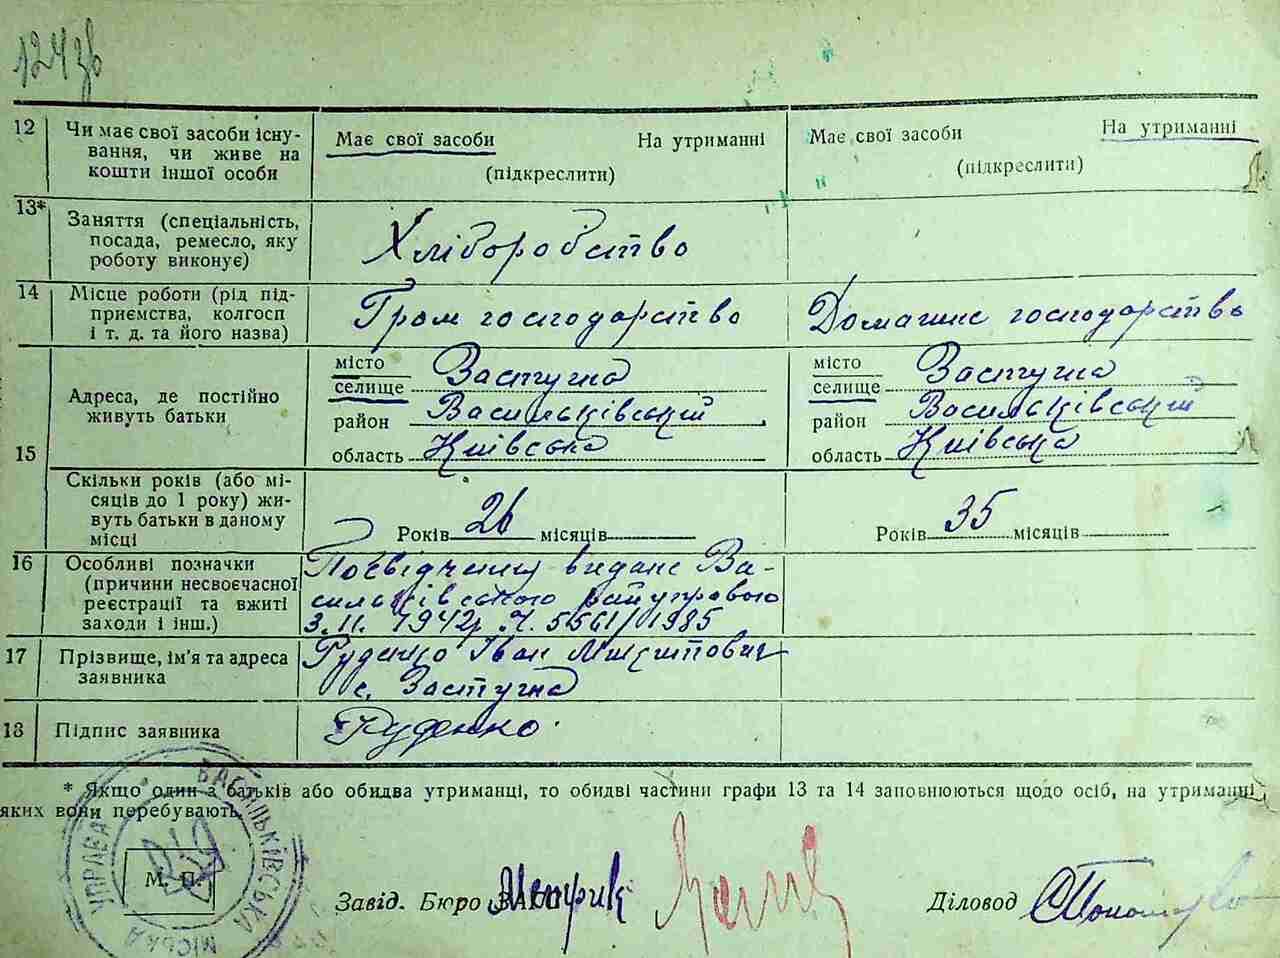 124зв
12 Чи має свої засоби існу-
вання, чи живе на
кошти іншої особи
Має свої засоби На утриманні
(підкреслити)
Має свої засоби На утриманні
(підкреслити)
13* Заняття (спеціальність,
посада, ремесло, яку
роботу виконує)
Хліборобство
14 Місце роботи (рід під-
приємства, колгосп
і т. д. та його назва)
Гром господарство
Домашнє господарство
15 Адреса, де постійно
живуть батьки
місто
селище Застугна
район Васильківський
область Київська
місто
селище Застугна
район Васильківський
область Київська
Скільки років (або мі-
сяців до 1 року) жи-
вуть батьки в даному
місці
Років 26 місяців
Років 35 місяців
16 Особливі позначки
(причини несвоєчасної
реєстрації та вжиті
заходи і інш.)
Посвідчину видане Ва-
сильківською райуправою
3.II. 1942р Ч. 5561/1985
17 Прізвище, ім'я та адреса
заявника
Руденко Іван Микитович
с. Застугна
18 Підпис заявника
Руденко
* Якщо один з батьків або обидва утриманці, то обидві частини графи 13 та 14 заповнюються щодо осіб, на утриманні
яких вони перебувають.
ВАСИЛЬКІВСЬКА МІСЬКА УПРАВА
М. П.
Завід. Бюро Метрик
Діловод